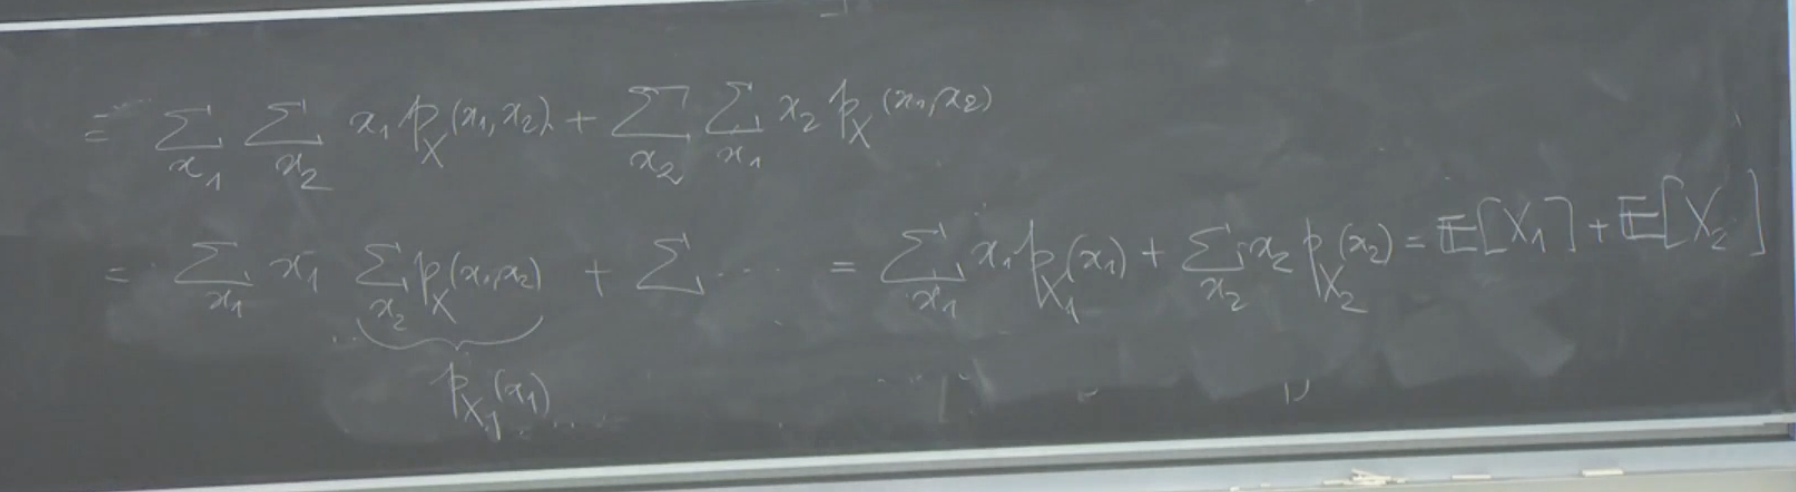 = ∑_{x_1} ∑_{x_2} x_1 p_X(x_1, x_2) + ∑_{x_2} ∑_{x_1} x_2 p_X(x_1, x_2)
= ∑_{x_1} x_1 ∑_{x_2} p_X(x_1, x_2) + ∑ ... = ∑_{x_1} x_1 p_{X_1}(x_1) + ∑_{x_2} x_2 p_{X_2}(x_2) = 𝔼[X_1] + 𝔼[X_2]
p_{X_1}(x_1)